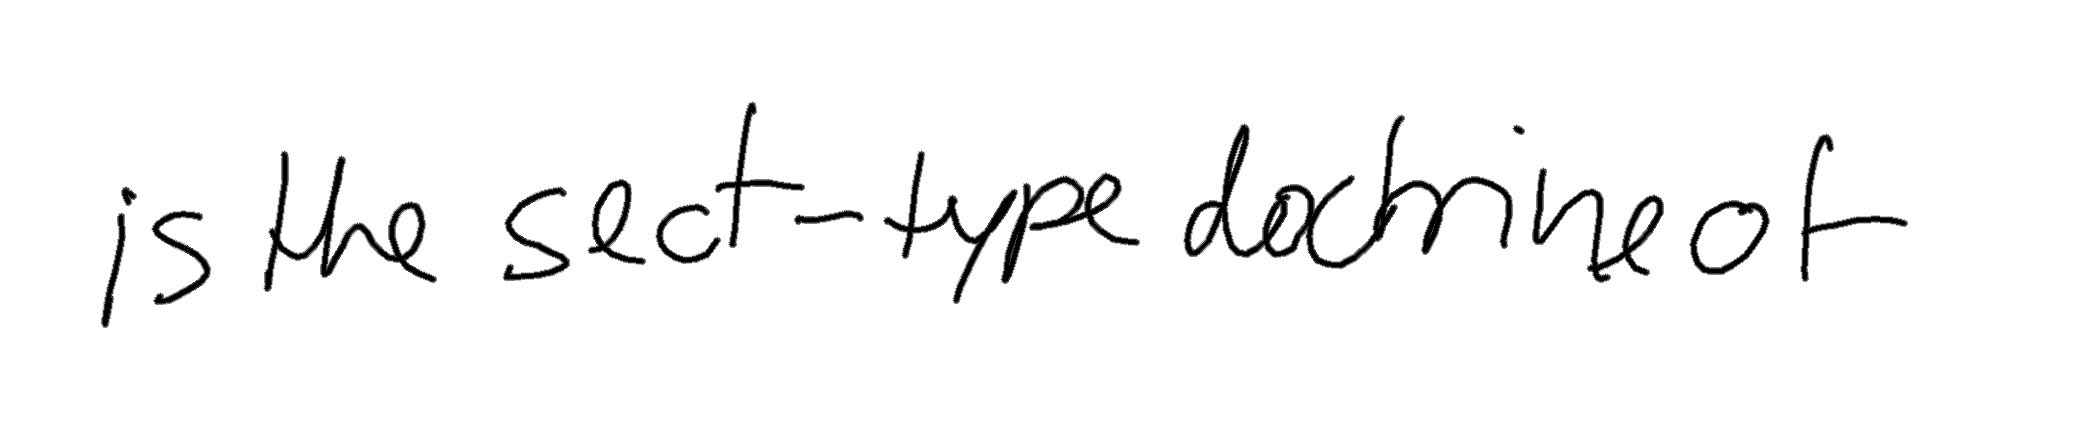 is the sect-type doctrine of